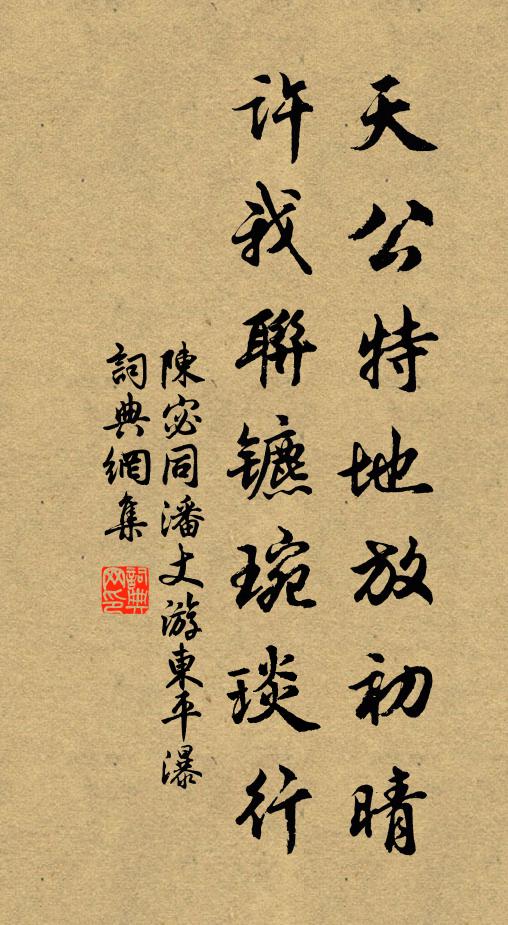 天公特地放初晴
許我聯鑣琬琰行
陳宓同潘丈游東平瀑
詞典網集
詞典网印